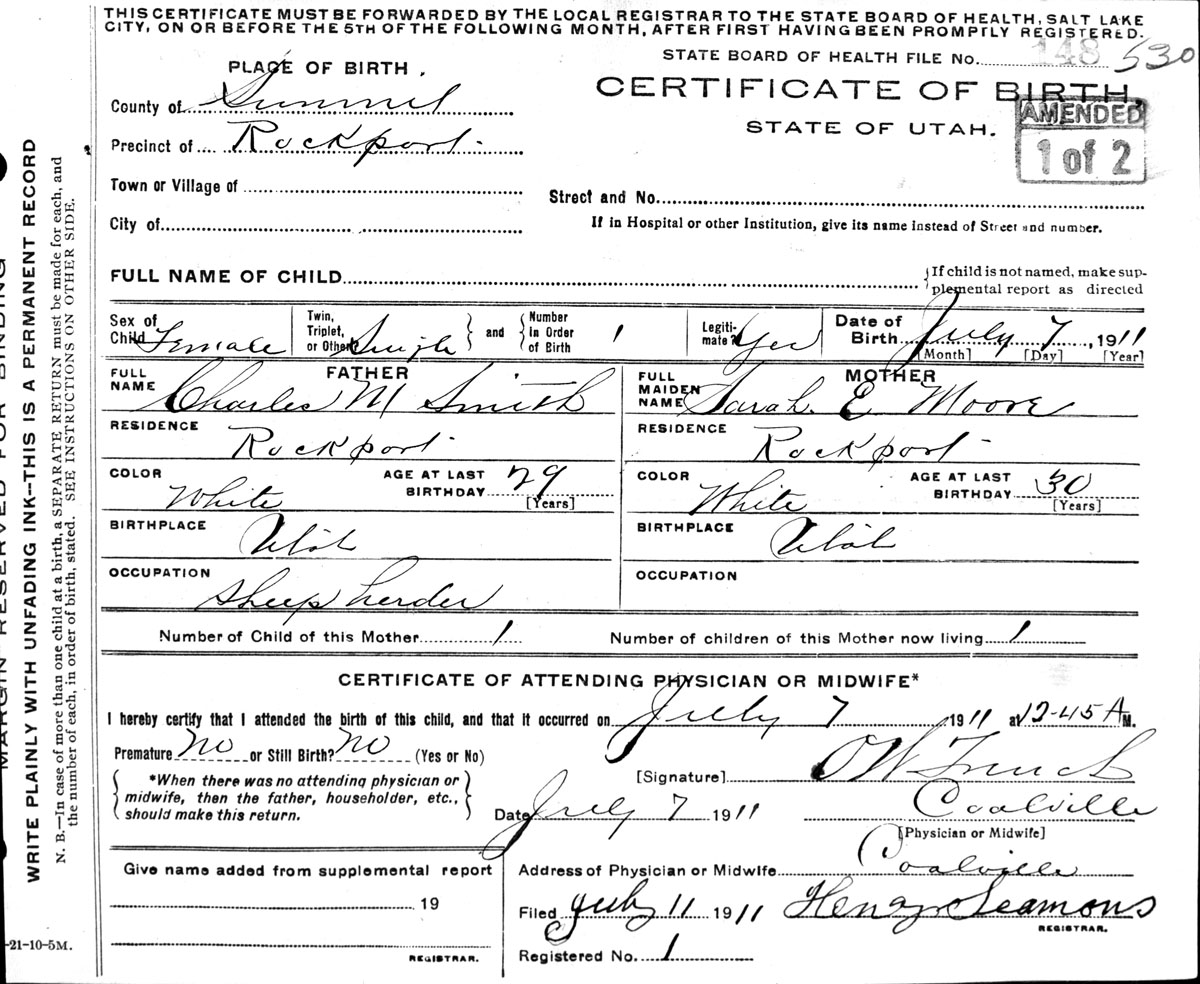 THIS CERTIFICATE MUST BE FORWARDED BY THE LOCAL REGISTRAR TO THE STATE BOARD OF HEALTH, SALT LAKE
CITY, ON OR BEFORE THE 5TH OF THE FOLLOWING MONTH, AFTER FIRST HAVING BEEN PROMPTLY REGISTERED.
STATE BOARD OF HEALTH FILE No. 148 530
PLACE OF BIRTH.
CERTIFICATE OF BIRTH.
STATE OF UTAH.
AMENDED
1 of 2
County of Summit
Precinct of Rockport
Town or Village of
Street and No.
City of
If in Hospital or other Institution, give its name instead of Street and number.
FULL NAME OF CHILD
If child is not named, make sup-
plemental report as directed
Sex of Child Female
Twin, Triplet, or Other? Single and Number in Order of Birth 1
Legiti-mate? Yes
Date of Birth July 7, 1911
[Month] [Day] [Year]
FATHER
FULL NAME Charles M Smith
RESIDENCE Rockport
COLOR White AGE AT LAST BIRTHDAY 29
[Years]
BIRTHPLACE Utah
OCCUPATION Sheep herder
MOTHER
FULL MAIDEN NAME Sarah E Moore
RESIDENCE Rockport
COLOR White AGE AT LAST BIRTHDAY 30
[Years]
BIRTHPLACE Utah
OCCUPATION
Number of Child of this Mother 1 Number of children of this Mother now living 1
CERTIFICATE OF ATTENDING PHYSICIAN OR MIDWIFE*
I hereby certify that I attended the birth of this child, and that it occurred on July 7 1911 at 12-45 A M.
Premature No or Still Birth? No (Yes or No)
*When there was no attending physician or
midwife, then the father, householder, etc.,
should make this return.
[Signature] O W French
Date July 7 1911 Coalville
[Physician or Midwife]
Give name added from supplemental report
19
REGISTRAR.
Address of Physician or Midwife Coalville
Filed July 11 1911 Henry Seamons
REGISTRAR.
Registered No. 1
MARGIN RESERVED FOR BINDING
WRITE PLAINLY WITH UNFADING INK--THIS IS A PERMANENT RECORD
N. B.—In case of more than one child at a birth, a SEPARATE RETURN must be made for each, and
the number of each, in order of birth, stated. SEE INSTRUCTIONS ON OTHER SIDE.
-21-10-5M.